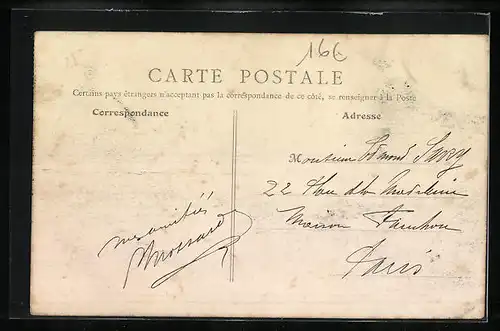 16€
CARTE POSTALE
Certains pays étrangers n'acceptant pas la correspondance de ce côté, se renseigner à la Poste
Correspondance
Adresse
Monsieur Edmond
22 de la Madeleine
mes amitiés
Maison
Paris